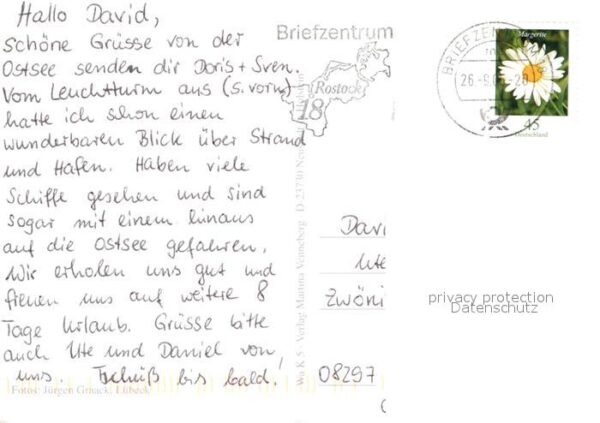 Hallo David,
schöne Grüsse von der
Ostsee senden dir Doris + Sven.
Vom Leuchtturm aus (s. vorn)
hatte ich schon einen
wunderbaren Blick über Strand
und Hafen. Haben viele
Schiffe gesehen und sind
sogar mit einem hinaus
auf die Ostsee gefahren.
Wir erholen uns gut und
freuen uns auf weitere 8
Tage Urlaub. Grüsse bitte
auch Ute und Daniel von
uns. Tschüß bis bald.
Fotos: Jürgen Lübeck
Wa K 5 - Verlag Martina Venneberg · D-23730
Briefzentrum
Rostock
18
BRIEFZENTRUM
26.-9.
Margerite
45
Deutschland
Davi
Ute
Zwöni
08297
privacy protection
Datenschutz